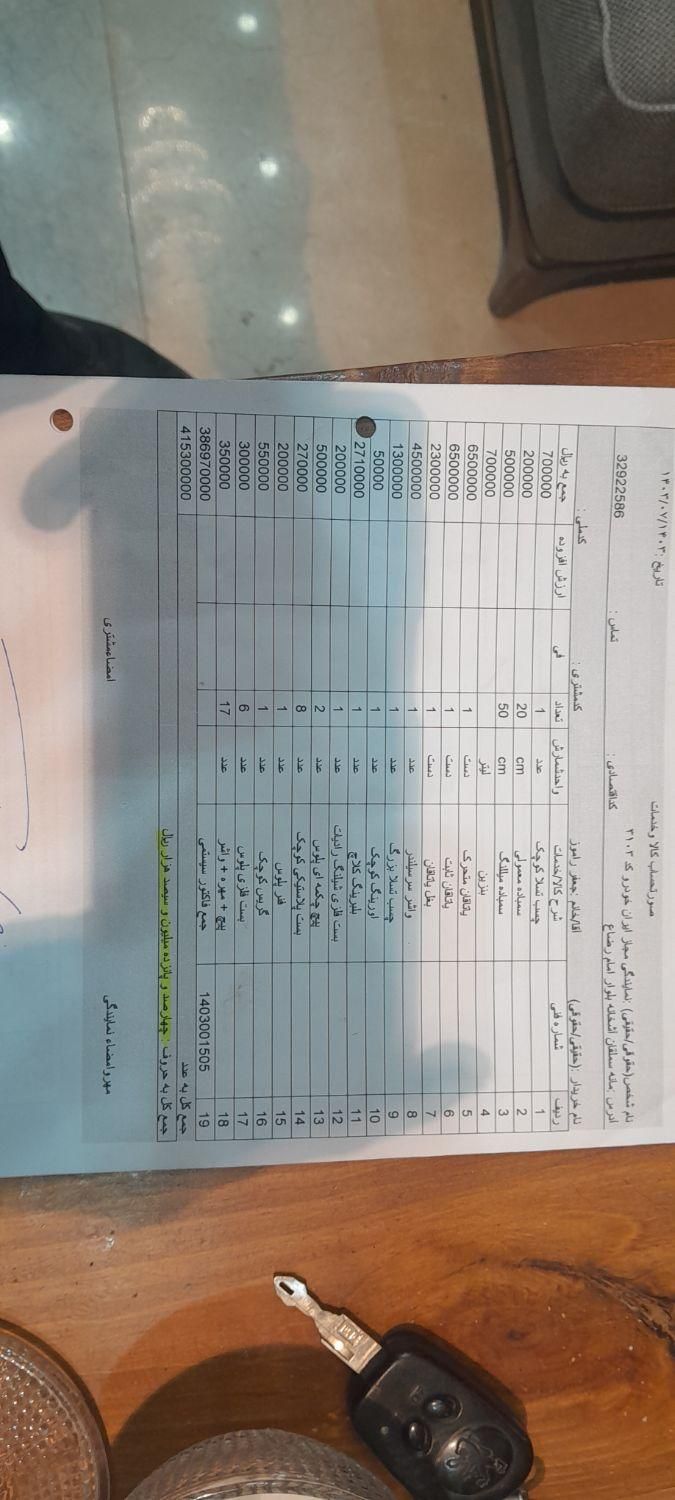 صورتحساب کالا وخدمات
تاریخ :۱۴۰۳/۰۷/۱۴
نام شخص(حقوقی/حقیقی) :نمایندگی مجاز ایران خودرو کد ۳۱۰۲
32922586
آدرس :مانه سملقان آشخانه بلوار امام رضاع
کداقتصادی : تماس :
نام خریدار :(حقیقی/حقوقی) آقا/خانم :جعفر رامور کدمشتری : کدملی :
ردیف شماره فنی شرح کالا/خدمات واحدشمارش تعداد فی ارزش افزوده جمع به ریال
1 چسب تسلا کوچک عدد 1 700000
2 سمباده معمولی cm 20 200000
3 سمباده میلنگ cm 50 500000
4 بنزین لیتر 700000
5 یاتاقان متحرک دست 1 6500000
6 یاتاقان ثابت دست 1 6500000
7 بغل یاتاقان دست 1 2300000
8 واشر سرسیلندر عدد 1 4500000
9 چسب تسلا بزرگ عدد 1 1300000
10 اورینگ کوچک عدد 1 50000
11 بلبرینگ کلاچ عدد 1 2710000
12 بست فلزی شیلنگ رادیات عدد 1 200000
13 پیچ چکمه ای پلوس عدد 2 500000
14 بست پلاستیکی کوچک عدد 8 270000
15 فنر پلوس عدد 1 200000
16 گریس کوچک عدد 1 550000
17 بست فلزی پلوس عدد 6 300000
18 پیچ + مهره + واشر عدد 17 350000
19 1403001505 جمع فاکتور سیستمی 386970000
جمع کل به عدد 415300000
جمع کل به حروف : چهارصد و پانزده میلیون و سیصد هزار ریال
مهروامضاء نمایندگی امضاءمشتری